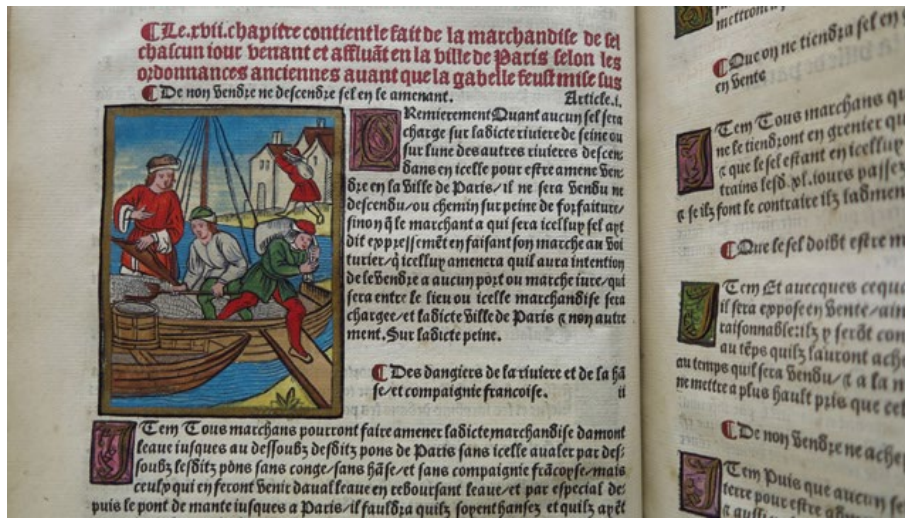 ¶Le.xvii.chapitre contient le fait de la marchandise de sel
chascun iour venant et affluāt en la ville de Paris selon les
ordonnances anciennes auant que la gabelle feust mise sus
¶De non vendre ne descendre sel en le amenant. Article.i.
PRemierement Quant aucun sel sera
charge sur ladicte riuiere de seine ou
sur lune des autres riuieres descen⸗
dans en icelle pour estre amene ven⸗
dre en la ville de Paris/ il ne sera vendu ne
descendu/ou chemin sur peine de forfaiture/
sinon q̃ le marchant a qui sera icelluy sel ayt
dit expressemēt en faisant son marche au voi
turier/q̇ icelluy amenera quil aura intention
de le vendre a aucun port ou marche iure/qui
sera entre le lieu ou icelle marchandise sera
chargee/et ladicte ville de Paris ⁊ non autre
ment. Sur ladicte peine.
¶Des dangiers de la riuiere et de la hā
se/et compaignie francoise. ii
ITem Tous marchans pourront faire amener ladicte marchandise damont
leaue iusques au dessoubz desditz pons de Paris sans icelle aualer par des⸗
soubz lesditz pōns sans conge/sans hāse/et sans compaignie frācoyse/mais
ceulx qui en feront venir daual leaue en reboursant leaue/et par especial de⸗
puis le pont de mante iusques a Paris/il fauldra quilz soyent hansez et quilz ayēt
mettront
¶Que on ne tiendra sel en
en vente
ITem Tous marchans qu
ne le tiendront en grenier qu
⁊ que le sel estant en icelluy
trains lesd. xl. iours passez
⁊ se ilz font le contraire ilz ladmen
¶Que le sel doibt estre m
ITem Et auecques ce qua
il sera expose en vente/ain
raisonnable:ilz y serōt con
au tēps quilz lauront ache
au temps quil sera vendu/⁊ a la n
ne mettre a plus hault pris que cel
¶De non vendre ne achep
ITem Puis que aucun se
terre pour estre
⁊ aussi